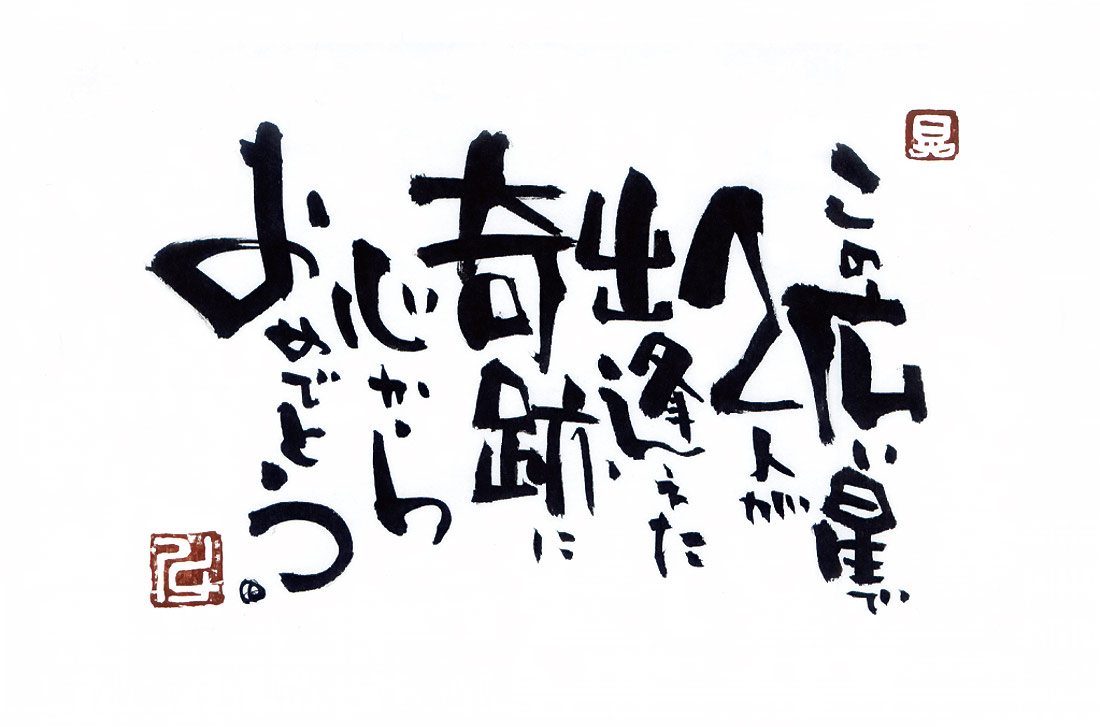 この広い星で
2人が
出逢えた
奇跡に
心から
おめでとう。